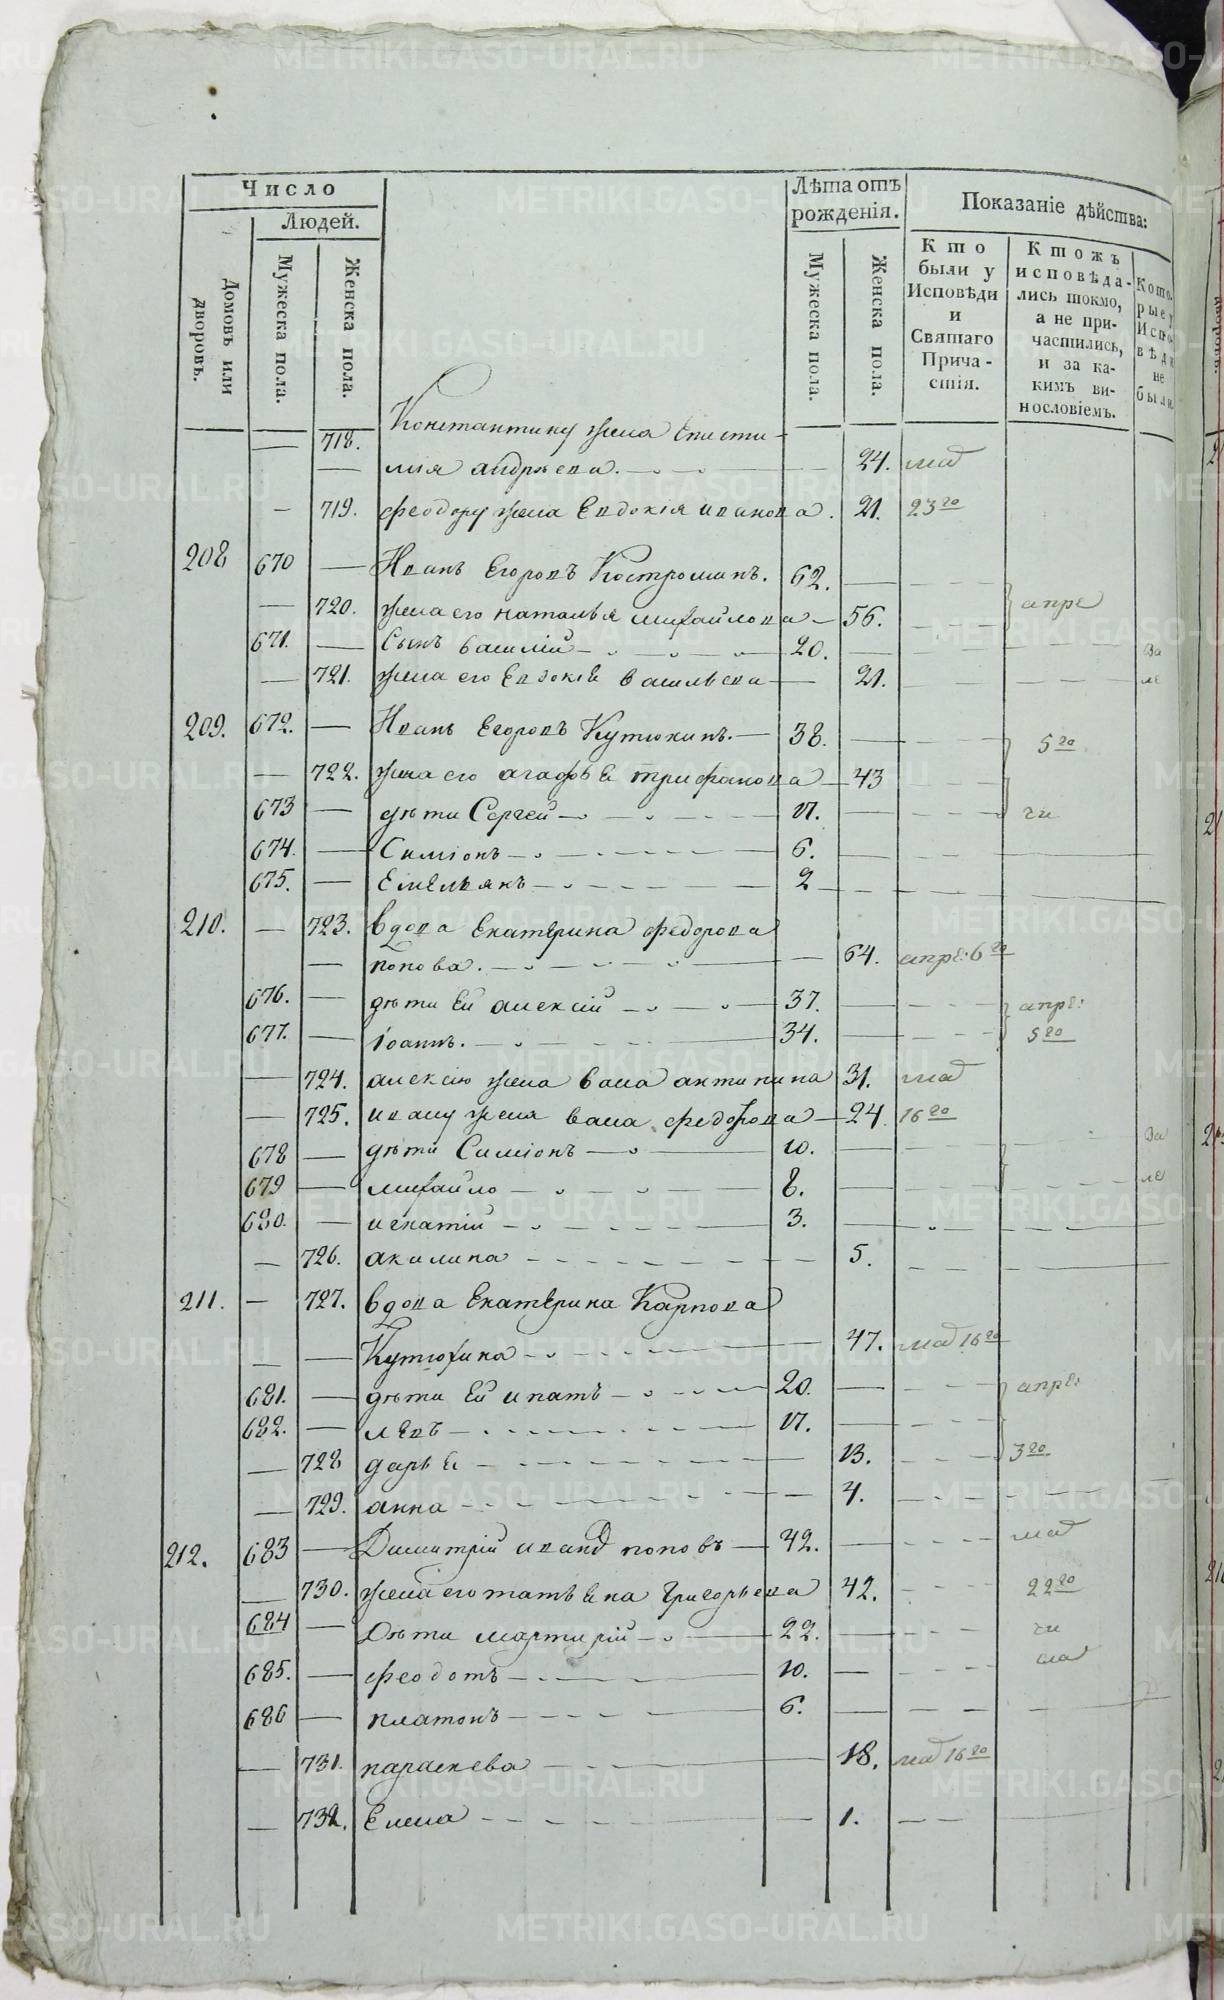 Число
Лѣта отъ рожденія.
Показаніе дѣйства:
Людей.
Домовъ или дворовъ.
Мужеска пола.
Женска пола.
Мужеска пола.
Женска пола.
Кто были у Исповѣди и Святаго Причастія.
Ктожъ исповѣдались токмо, а не причастились, и за какимъ винословіемъ.
Которые у Исповѣди не были
— 718. Константину жена Еписти-
— лия андрѣева. — 24. маа
— 719. феодору жена Евдокія иванова. 21. 23го
208 670 — Иванъ Егоровъ Костроминъ. 62. —
— 720. жена его наталья михайлова — 56. апре
671. — Сынъ василій — 20. —
— 721. жена его Евдокіѣ васильева — 21.
209. 672. — Иванъ Егоровъ Кутюхинъ. — 38. — 5го
— 722. жена его агафьѣ трифанова — 43
673 — дѣти Сергей — 17. — чи
674. — Симіонъ — 6.
675. — Емельянъ — 2
210. — 723. вдова Екатерина федорова
— попова. — 64. апре: 6го
676. — дѣти Ей алексій — 37. — апре:
677. — іоаннъ. — 34. — 5го
— 724. алексію жена васа антипина 31. маа
— 725. ивану жена васа федорова — 24. 16го
678 — дѣти Симіонъ — 10. —
679 — михайло — 8. —
680. — игнатій — 3. —
— 726. акилина — 5.
211. — 727. вдова Екатерина Карпова
— Кутюхина — 47. маа 16го
681. — дѣти Ей ипатъ — 20. — апре:
682. — левъ — 17. —
— 728 дарьѣ — 13. 3го
— 729. анна — 4.
212. 683 — Димитрій иванд поповъ — 42. — маа
— 730. жена его татьѣна григорьева 42. 22го
684 — Дѣти мартирій — 22. — чи
685. — феодотъ — 10. —
686 — платонъ — 6. —
— 731. параскева — 18. маа 16го
— 732. Елена — 1.
METRIKI.GASO-URAL.RU